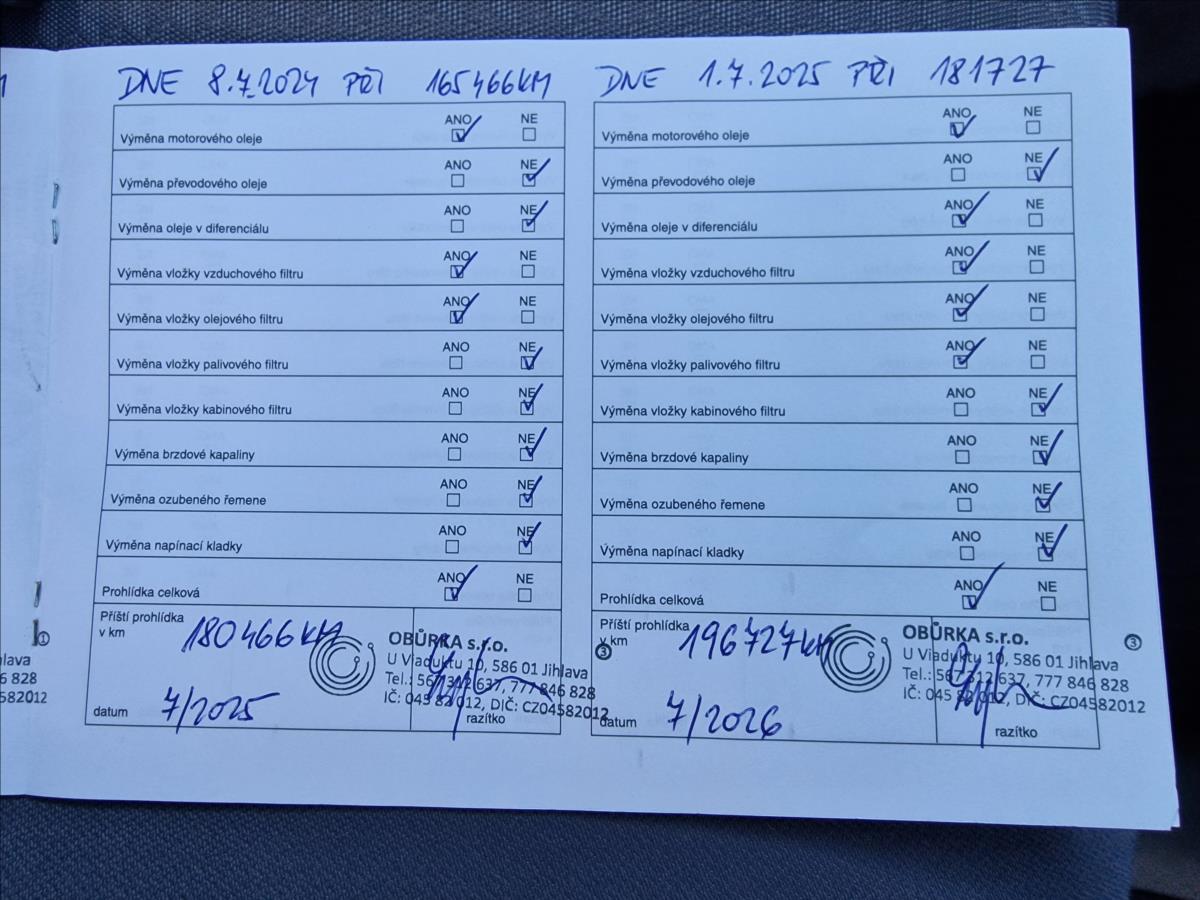 DNE 8.7.2024 PŘI 165466KM
ANO NE
Výměna motorového oleje
ANO NE
Výměna převodového oleje
ANO NE
Výměna oleje v diferenciálu
ANO NE
Výměna vložky vzduchového filtru
ANO NE
Výměna vložky olejového filtru
ANO NE
Výměna vložky palivového filtru
ANO NE
Výměna vložky kabinového filtru
ANO NE
Výměna brzdové kapaliny
ANO NE
Výměna ozubeného řemene
ANO NE
Výměna napínací kladky
ANO NE
Prohlídka celková
Příští prohlídka
v km
180466KM
datum
7/2025
OBŮRKA s.r.o.
U Viaduktu 10, 586 01 Jihlava
Tel.: 567 312 637, 777 846 828
IČ: 045 82 012, DIČ: CZ04582012
razítko
DNE 1.7.2025 PŘI 181727
ANO NE
Výměna motorového oleje
ANO NE
Výměna převodového oleje
ANO NE
Výměna oleje v diferenciálu
ANO NE
Výměna vložky vzduchového filtru
ANO NE
Výměna vložky olejového filtru
ANO NE
Výměna vložky palivového filtru
ANO NE
Výměna vložky kabinového filtru
ANO NE
Výměna brzdové kapaliny
ANO NE
Výměna ozubeného řemene
ANO NE
Výměna napínací kladky
ANO NE
Prohlídka celková
Příští prohlídka
v km
196727km
datum
7/2026
OBŮRKA s.r.o.
U Viaduktu 10, 586 01 Jihlava
Tel.: 567 312 637, 777 846 828
IČ: 045 82 012, DIČ: CZ04582012
razítko
①
③
③
lava
6 828
582012